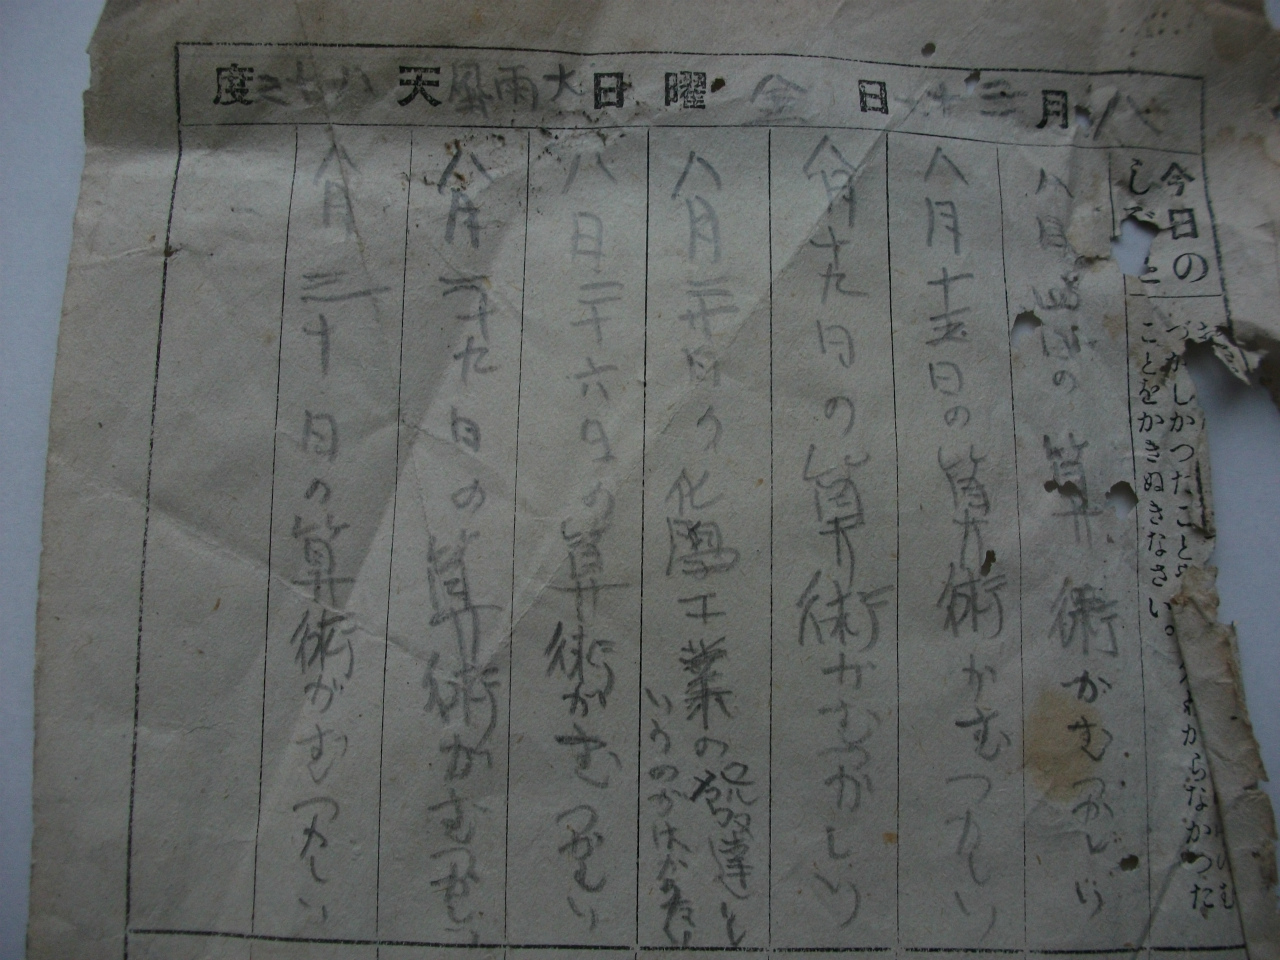 八月三十一日 金曜日 大雨風天 八十六之度
今日の
しごと
づかしかつたこと
ことをかきぬきなさい。
からなかつた
八月 日の算術がむつかしい
八月十五日の算術がむつかしい
八月十九日の算術がむづかしい
八月二十日の化學工業の発達と
いうのがはからない
八日二十六日の算術がむつかしい
八月二十九日の算術がむつかしい
八月三十日の算術がむつかしい